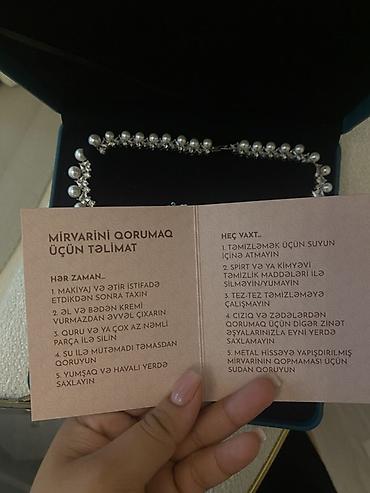 MİRVARİNİ QORUMAQ
ÜÇÜN TƏLİMAT
HƏR ZAMAN...
1. MAKİYAJ VƏ ƏTİR İSTİFADƏ
ETDİKDƏN SONRA TAXIN
2. ƏL VƏ BƏDƏN KREMİ
VURMAZDAN ƏVVƏL ÇIXARIN
3. QURU VƏ YA ÇOX AZ NƏMLİ
PARÇA İLƏ SİLİN
4. SU İLƏ MÜTƏMADİ TƏMASDAN
QORUYUN
5. YUMŞAQ VƏ HAVALI YERDƏ
SAXLAYIN
HEÇ VAXT...
1. TƏMİZLƏMƏK ÜÇÜN SUYUN
İÇİNƏ ATMAYIN
2. SPİRT VƏ YA KİMYƏVİ
TƏMİZLİK MADDƏLƏRİ İLƏ
SİLMƏYİN/YUMAYIN
3. TEZ-TEZ TƏMİZLƏMƏYƏ
ÇALIŞMAYIN
4. CIZIQ VƏ ZƏDƏLƏRDƏN
QORUMAQ ÜÇÜN DİGƏR ZİNƏT
ƏŞYALARINIZLA EYNİ YERDƏ
SAXLAMAYIN
5. METAL HİSSƏYƏ YAPIŞDIRILMIŞ
MİRVARİNİN QOPMAMASI ÜÇÜN
SUDAN QORUYUN